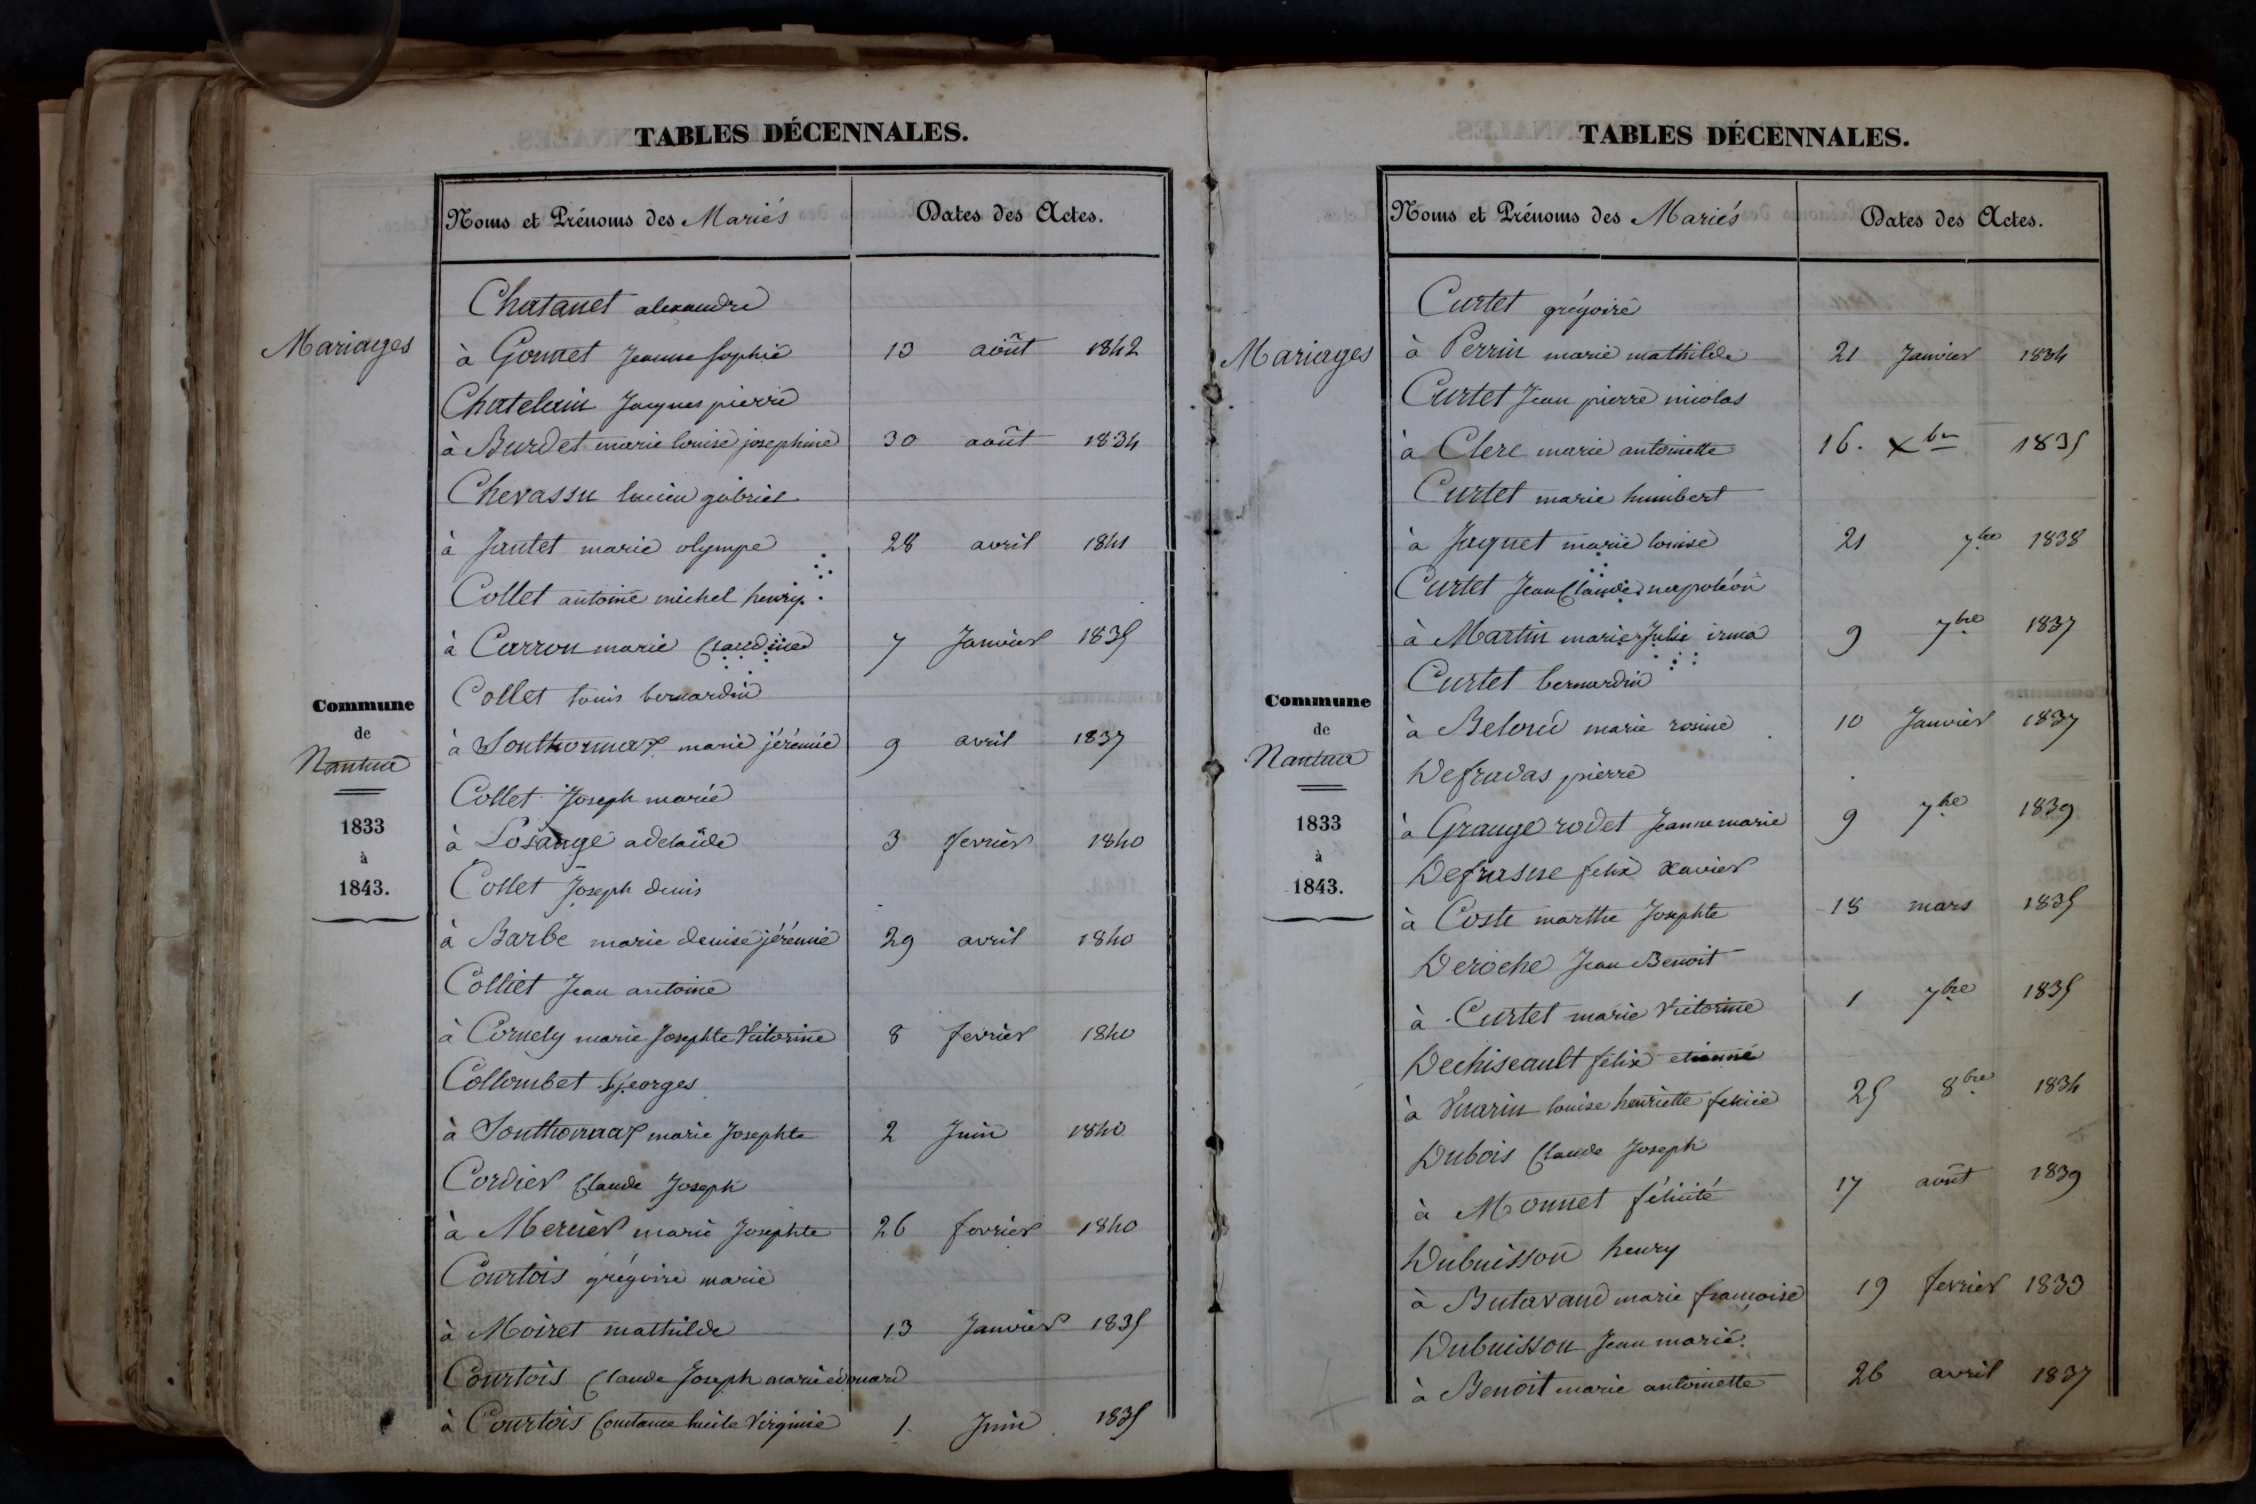 TABLES DÉCENNALES.
Noms et Prénoms des Mariés Dates des Actes.
Mariages
Commune
de
Nantua
1833
à
1843.
Chatanet alexandre
à Gonnet Jeanne Sophie 13 août 1842
Chatelain Jacques pierre
à Burdet marie louise josephine 30 août 1834
Chevassu lucien gabriel
à Jantet marie olympe 28 avril 1841
Collet antoine michel henry
à Carron marie Claudine 7 Janvier 1835
Collet louis bernardin
à Southonnax marie jérémie 9 avril 1837
Collet Joseph marie
à Losange adelaïde 3 fevrier 1840
Collet Joseph denis
à Barbe marie denise jérémie 29 avril 1840
Colliet Jean antoine
à Cornely marie Josephte Victorine 8 fevrier 1840
Collombet Georges
à Southonnax marie Josephte 2 Juin 1840
Cordier Claude Joseph
à Mercier marie Josephte 26 fevrier 1840
Courtois grégoire marie
à Moiret mathilde 13 Janvier 1835
Courtois Claude Joseph marie edouard
à Courtois Constance lucile Virginie 1 Juin 1835
TABLES DÉCENNALES.
Noms et Prénoms des Mariés Dates des Actes.
Mariages
Commune
de
Nantua
1833
à
1843.
Curtet grégoire
à Perrin marie mathilde 21 Janvier 1834
Curtet Jean pierre nicolas
à Clerc marie antoinette 16. Xbre 1835
Curtet marie humbert
à Jaquet marie louise 21 7bre 1838
Curtet Jean Claude napoléon
à Martin marie Julie irma 9 7bre 1837
Curtet bernardin
à Beloué marie rosine 10 Janvier 1837
Defradas pierre
à Grange rodet Jeanne marie 9 7bre 1839
Defrasne felix Xavier
à Coste marthe Josephte 18 mars 1835
Deroche Jean Benoit
à Curtet marie Victorine 1 7bre 1835
Dechiseault félix etienne
à Vuarin louise henriette felicie 25 8bre 1834
Dubois Claude Joseph
à Monnet félicité 17 août 1839
Dubuisson henry
à Butavand marie françoise 19 fevrier 1833
Dubuisson Jean marie
à Benoit marie antoinette 26 avril 1837